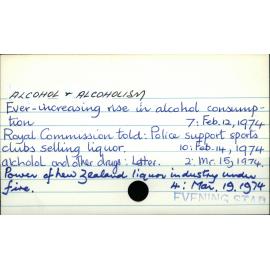 ALCOHOL & ALCOHOLISM
Ever-increasing rise in alcohol consump-
tion 7: Feb. 12, 1974
Royal Commission told: Police support sports
clubs selling liquor. 10: Feb. 14, 1974
alcholol and other drugs: Letter. 2: Mr. 15, 1974.
Power of New Zealand liquor industry under
fire. 4: Mar. 19. 1974
EVENING STAR